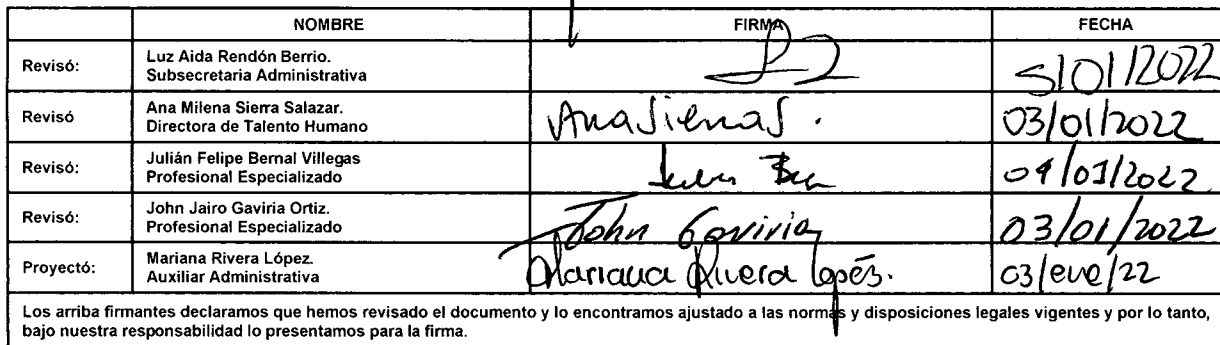 NOMBRE FIRMA FECHA
Revisó: Luz Aida Rendón Berrio.
Subsecretaria Administrativa
5/01/2022
Revisó Ana Milena Sierra Salazar.
Directora de Talento Humano
AnaSierraS. 03/01/2022
Revisó: Julián Felipe Bernal Villegas
Profesional Especializado
04/01/2022
Revisó: John Jairo Gaviria Ortiz.
Profesional Especializado
John Gaviria 03/01/2022
Proyectó: Mariana Rivera López.
Auxiliar Administrativa
Mariana Rivera lopés. 03/ene/22
Los arriba firmantes declaramos que hemos revisado el documento y lo encontramos ajustado a las normas y disposiciones legales vigentes y por lo tanto,
bajo nuestra responsabilidad lo presentamos para la firma.